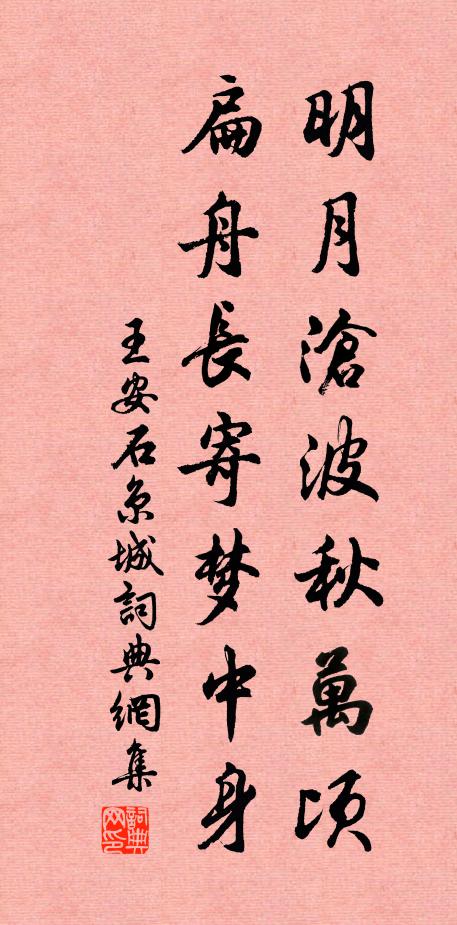 明月滄波秋萬頃
扁舟長寄梦中身
王安石京城詞典網集
詞典网印